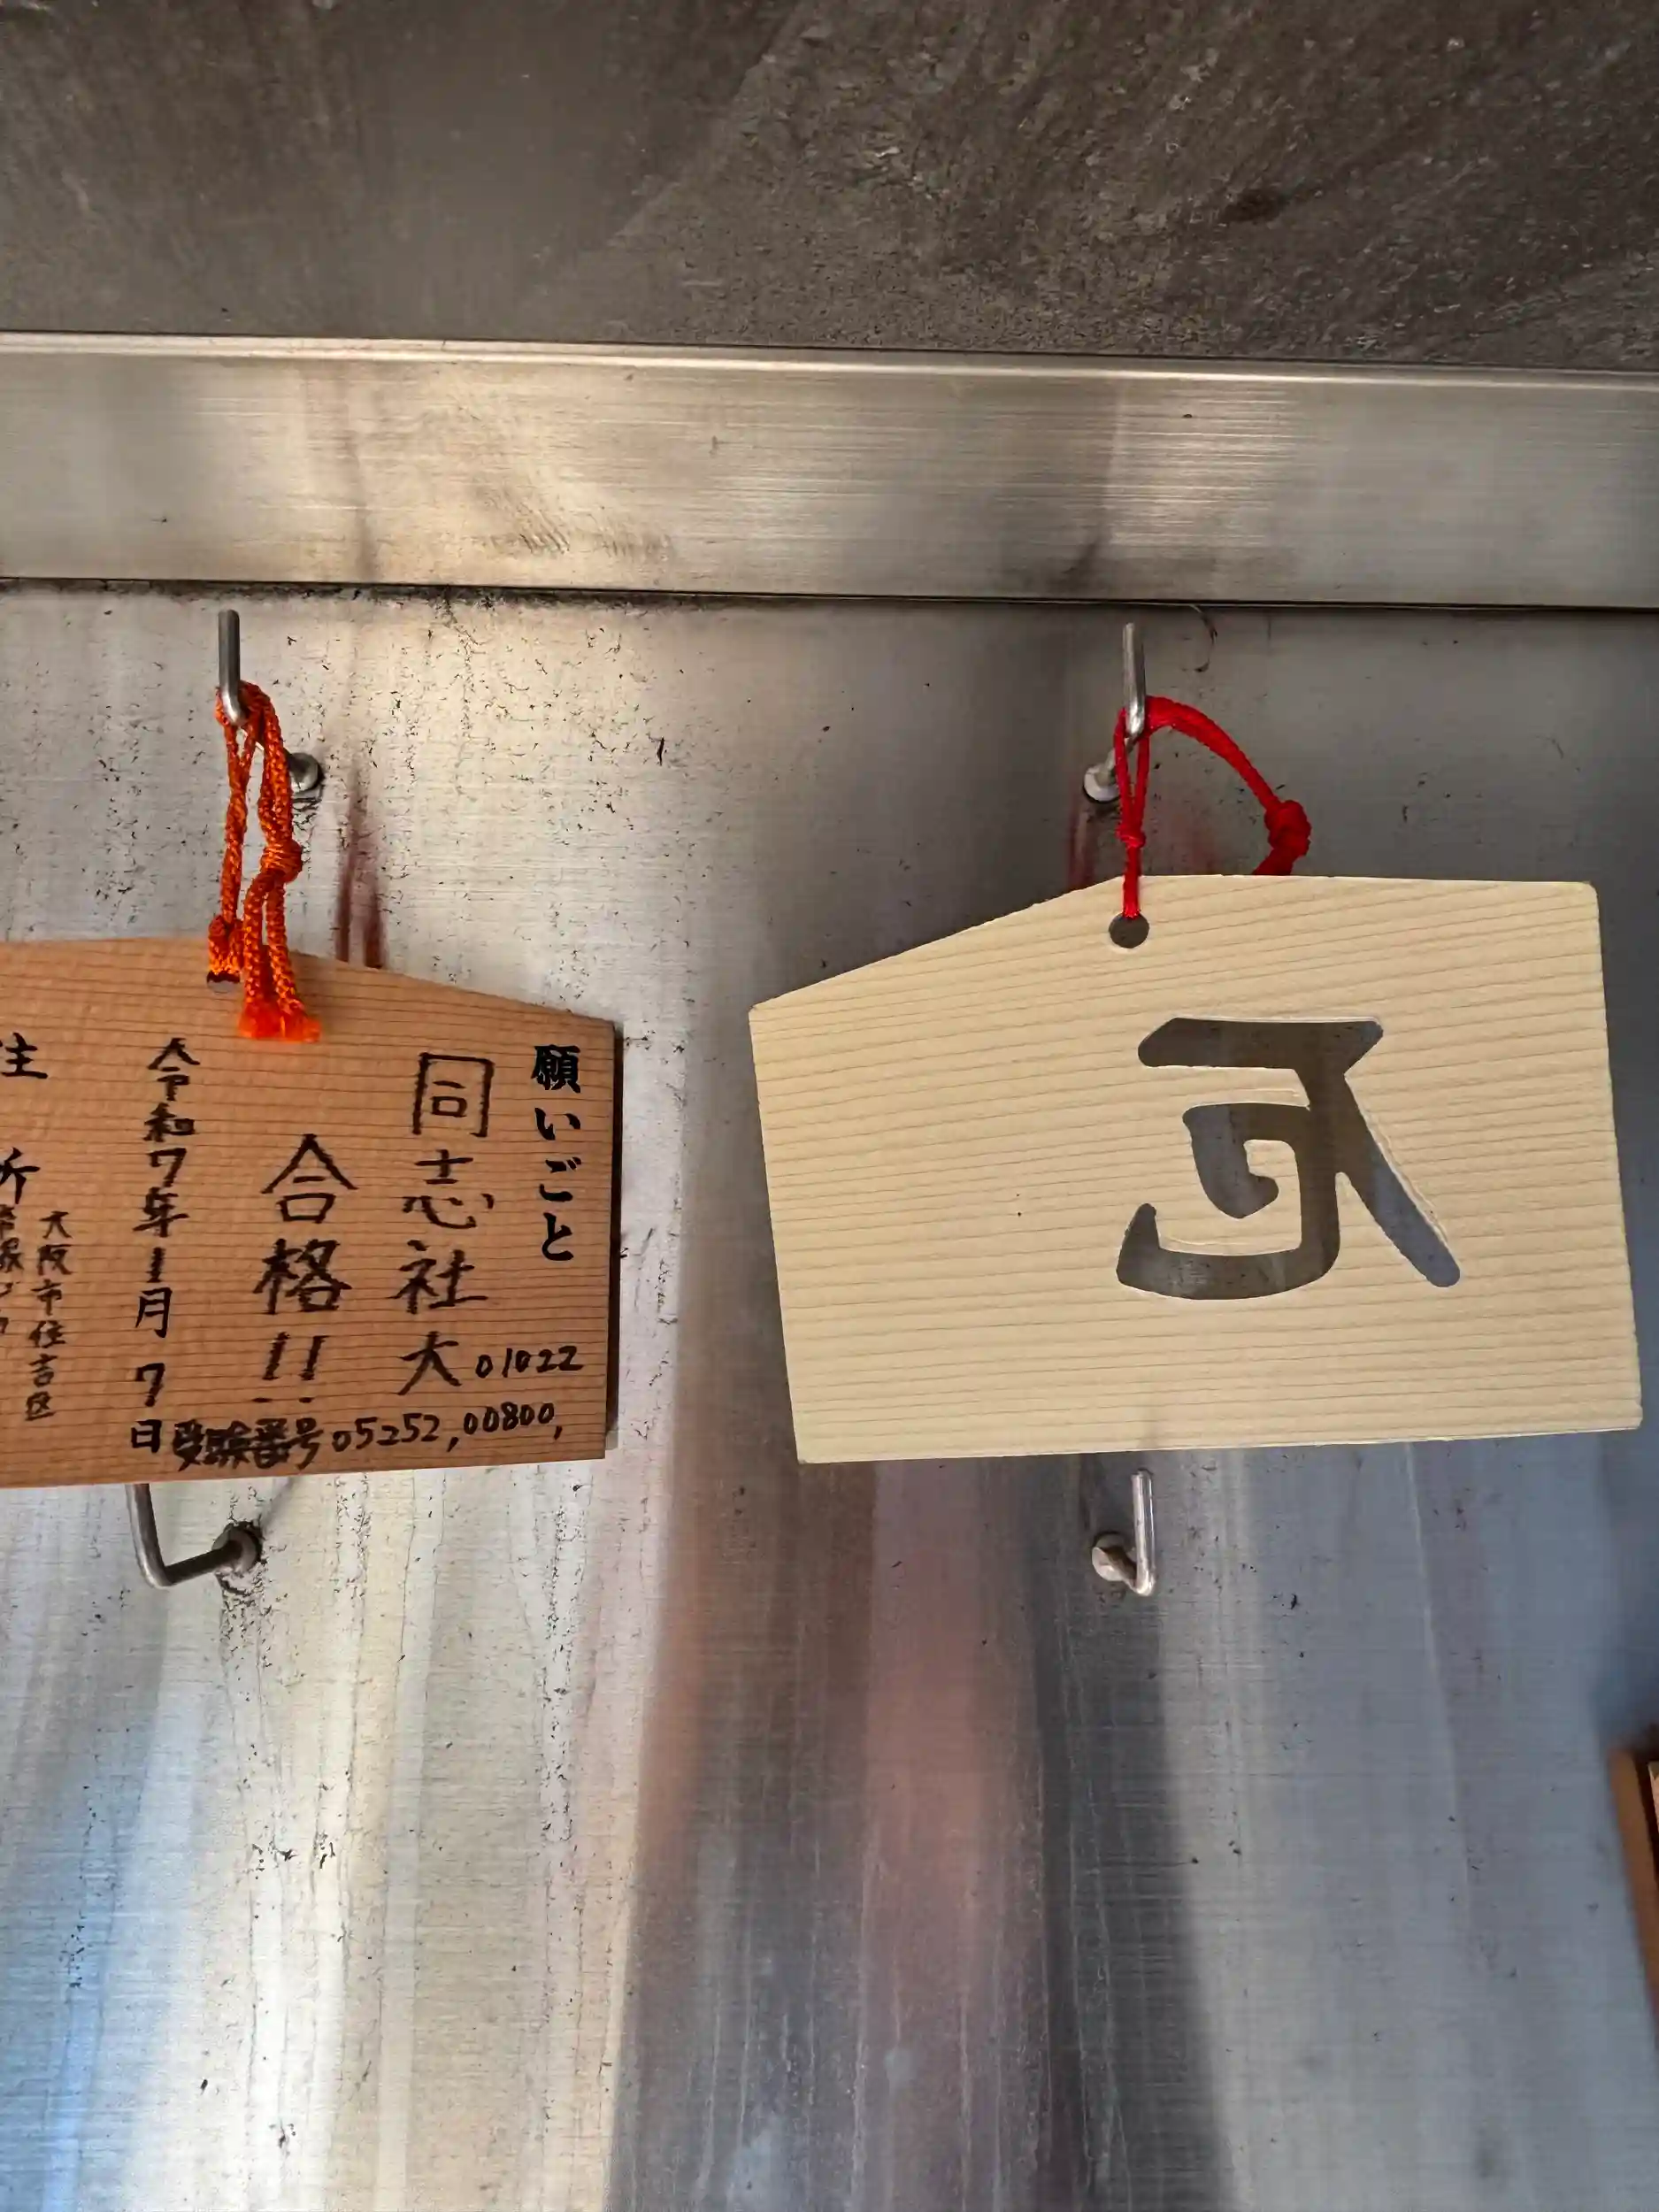 願いごと
同志社大
合格!!
受験番号05252,00800,
01022
令和7年1月7日
住所
大阪市住吉区